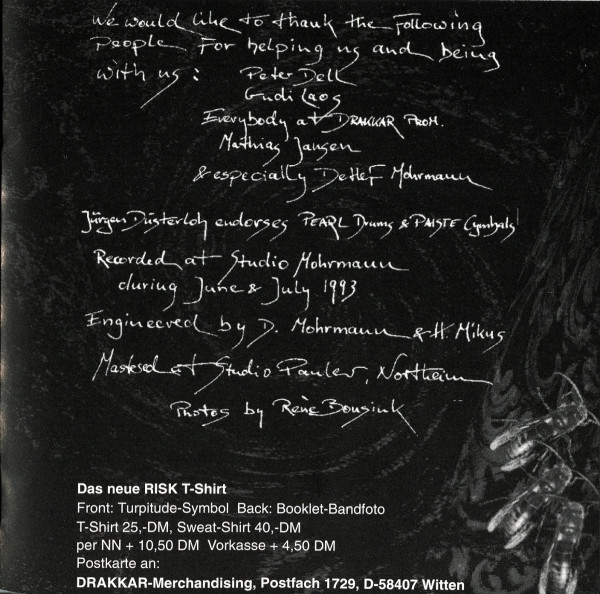 We would like to thank the following
people for helping us and being
with us: Peter Dell
Gudi Laos
Everybody at DRAKKAR PROM.
Mathias Jansen
& especially Detlef Mohrmann
Jürgen Düsterloh endorses PEARL Drums & PAISTE Cymbals
Recorded at Studio Mohrmann
during June & July 1993
Engineered by D. Mohrmann & H. Mikus
Mastered at Studio Pauler, Northeim
Photos by Renè Bousink
Das neue RISK T-Shirt
Front: Turpitude-Symbol Back: Booklet-Bandfoto
T-Shirt 25,-DM, Sweat-Shirt 40,-DM
per NN + 10,50 DM Vorkasse + 4,50 DM
Postkarte an:
DRAKKAR-Merchandising, Postfach 1729, D-58407 Witten